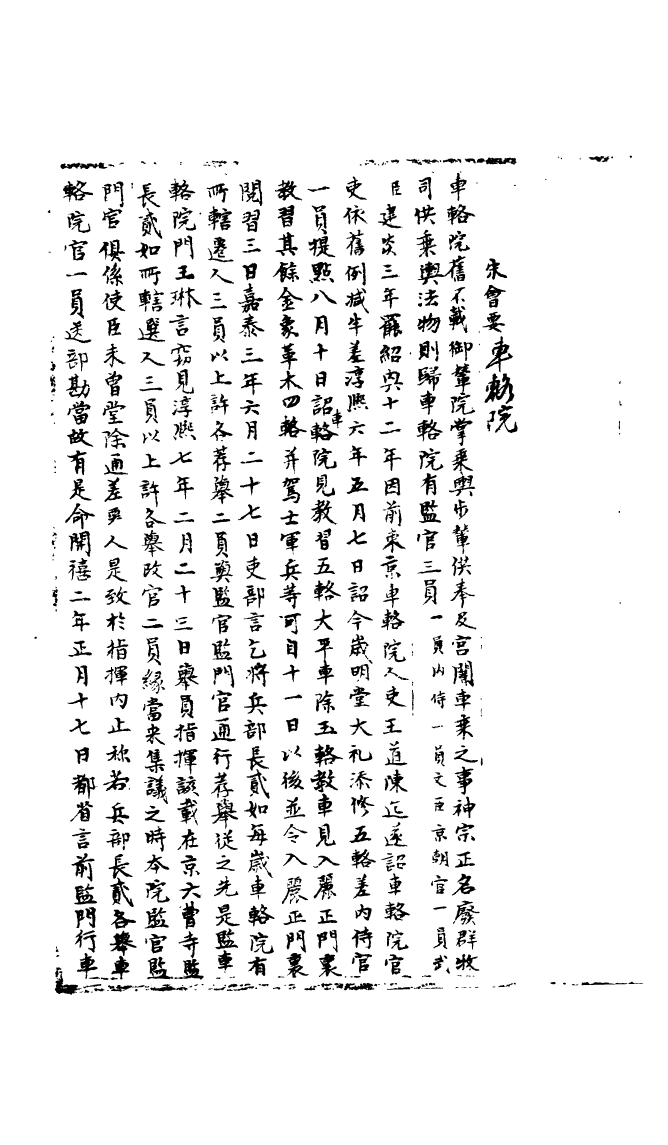 宋會要車輅院
車輅院舊不載御輦院掌乘輿步輦供奉及宮闈車乘之事神宗正名廢群牧
司供乘輿法物則歸車輅院有監官三員一員內侍一員文臣京朝官一員武
臣建炎三年罷紹興十二年因前東京車輅院人吏王道陳迄遂詔車輅院官
吏依舊例減半差淳熙六年五月七日詔今歲明堂大礼添修五輅差內侍官
一員提點八月十日詔車輅院見教習五輅大平車除玉輅教車見入麗正門裏
教習其餘金象革木四輅并駕士軍兵等可自十一日以後並令入麗正門裏
閱習三日嘉泰三年六月二十七日吏部言乞將兵部長貳如每歲車輅院有
所轄選人三員以上許各荐舉二員與監官監門官通行荐舉從之先是監車
輅院門王琳言竊見淳熙七年二月二十三日舉員指揮該載在京六曹寺監
長貳如所轄選人三員以上許各舉改官二員緣當來集議之時本院監官監
門官俱係使臣未曾堂除通差至人是致於指揮內止称若兵部長貳各舉車
輅院官一員送部勘當故有是命開禧二年正月十七日都省言前監門行車